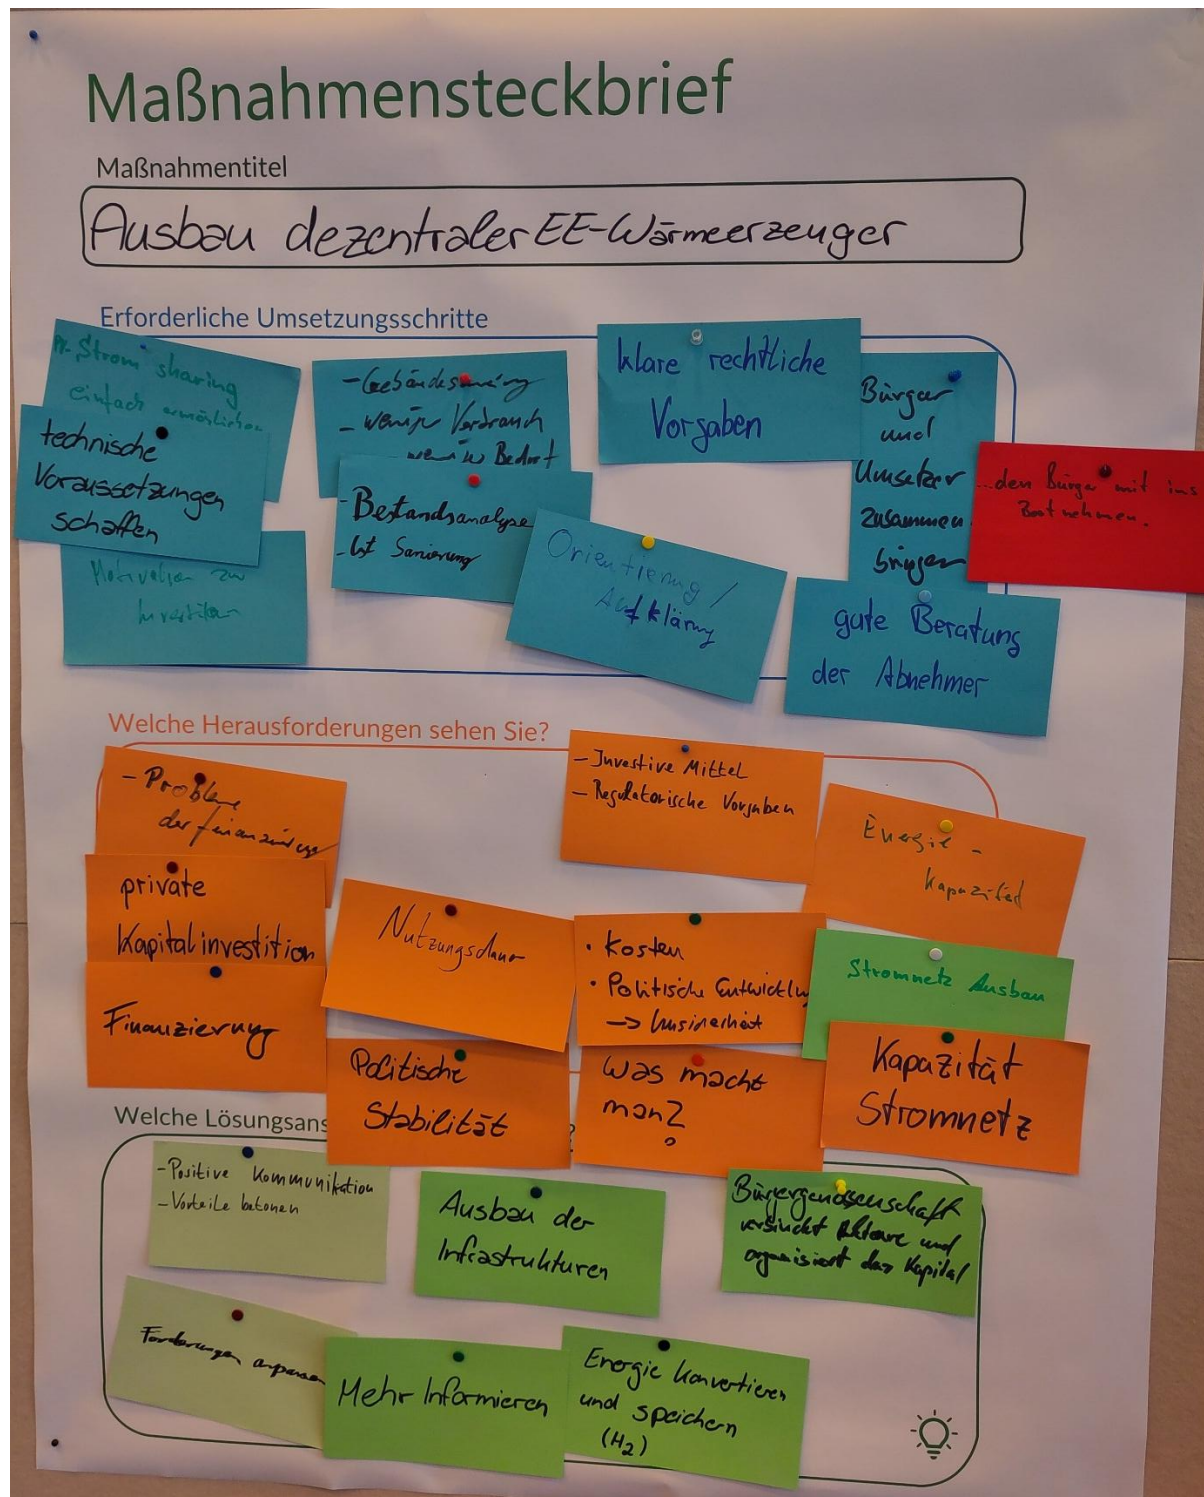 Maßnahmensteckbrief
Maßnahmentitel
Ausbau dezentraler EE-Wärmeerzeuger
Erforderliche Umsetzungsschritte
Strom sharing
einfach ermöglichen
technische
Voraussetzungen
schaffen
Motivation zu
- Gebäudesanierung
- weniger Verbrauch
weniger Bedarf
- Bestandsanalyse
- Ist Sanierung
klare rechtliche
Vorgaben
Orientierung /
Aufklärung
Bürger
und
Umsetzer
zusammen
bringen
...den Bürger mit ins
Boot nehmen.
gute Beratung
der Abnehmer
Welche Herausforderungen sehen Sie?
- Probleme
der Finanzierung
private
Kapitalinvestition
Finanzierung
Nutzungsdauer
Politische
Stabilität
- Investive Mittel
- Regulatorische Vorgaben
• Kosten
• Politische Entwicklung
-> Unsicherheit
was macht
man?
Energie -
Kapazität
Stromnetz Ausbau
Kapazität
Stromnetz
Welche Lösungsans
- Positive Kommunikation
- Vorteile betonen
Ausbau der
Infrastrukturen
Bürgergenossenschaft
und
organisiert das Kapital
anpassen
Mehr Informieren
Energie konvertieren
und speichern
(H2)